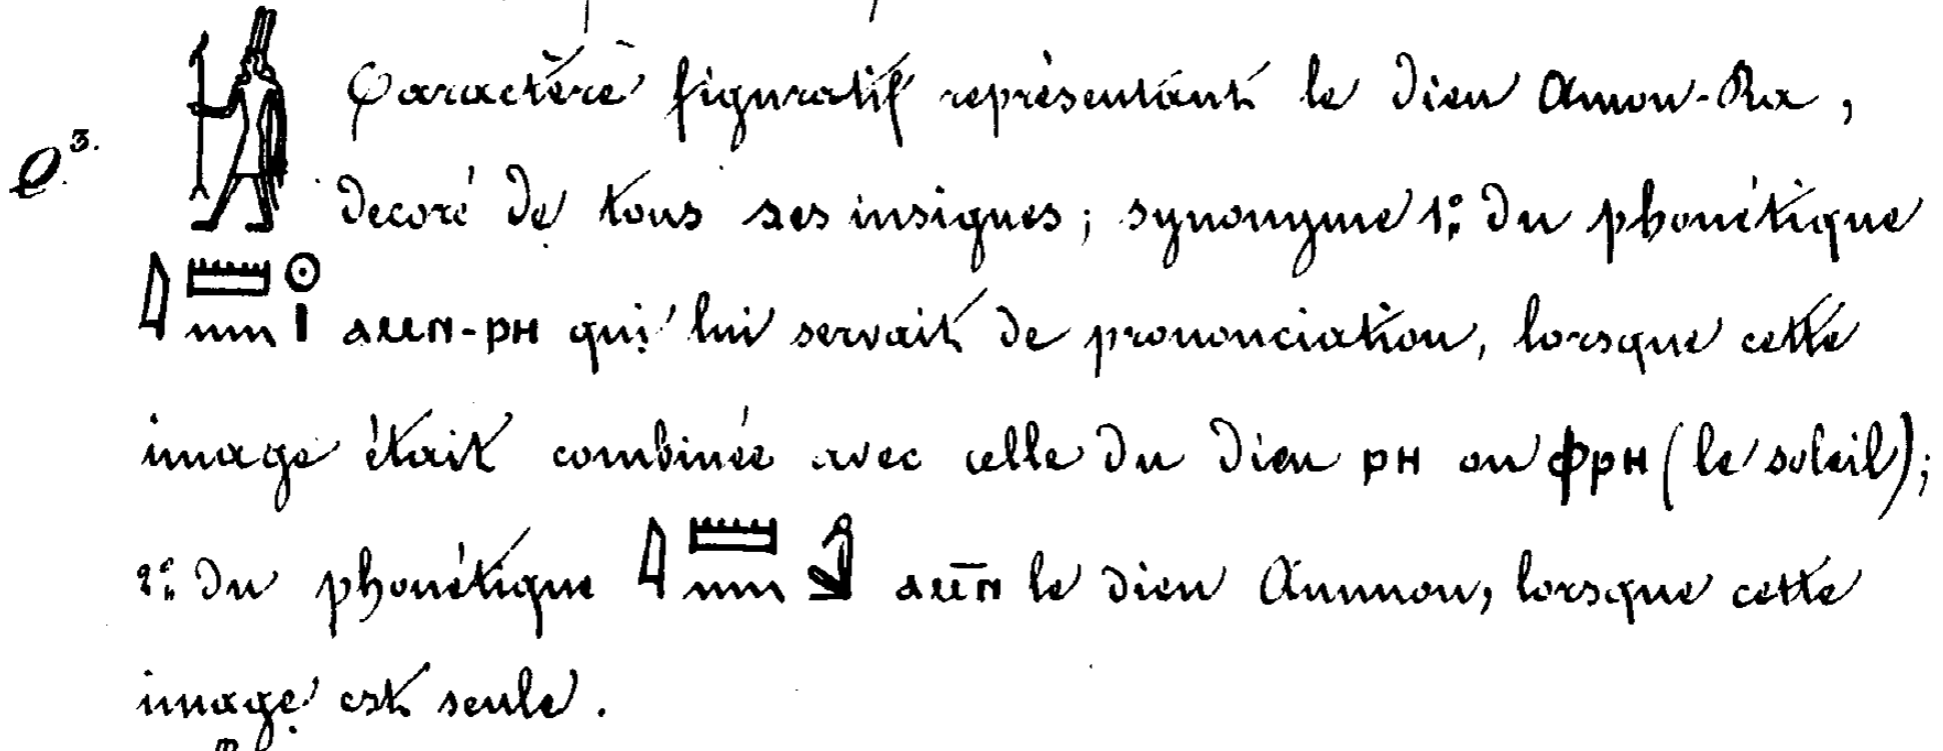 Q 3. Caractère figuratif représentant le dieu Amon-Ra,
decoré de tous ses insignes; synonyme 1º du phonétique
𓇋𓏠𓈖𓇳𓏤 ⲁⲙⲛ-ⲣⲏ qui lui servait de prononciation, lorsque cette
image était combinée avec celle du dieu ⲣⲏ ou ⲫⲣⲏ (le soleil);
2º du phonétique 𓇋𓏠𓈖𓀭 ⲁⲙ̅ⲛ le dieu Ammon, lorsque cette
image est seule.